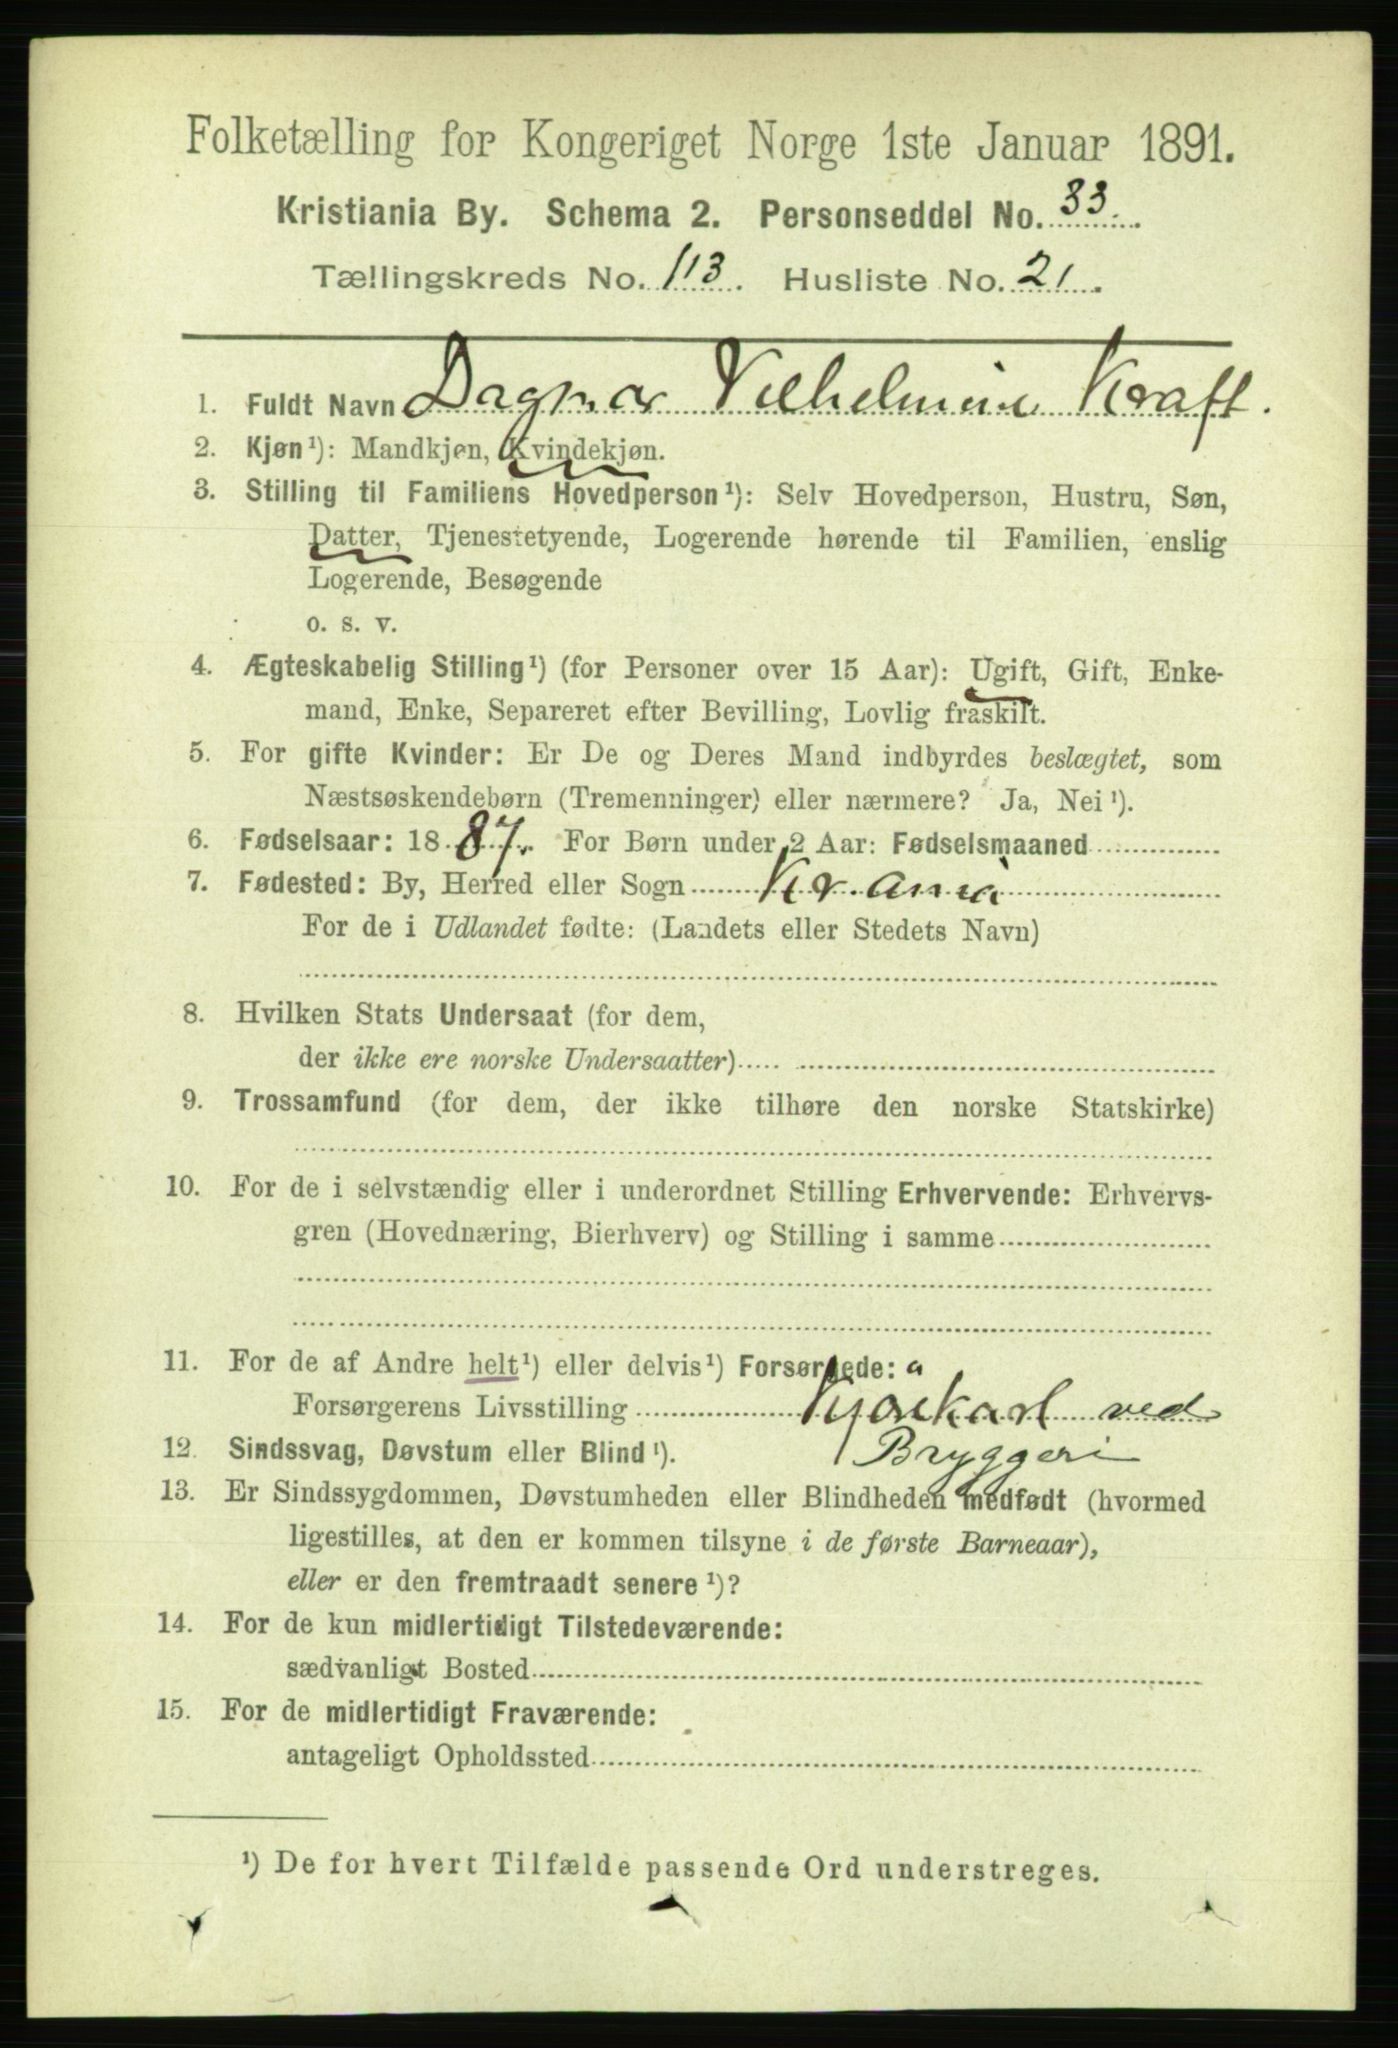 Folketælling for Kongeriget Norge 1ste Januar 1891.
Kristiania By. Schema 2. Personseddel No. 33.
Tællingskreds No. 113. Husliste No. 21.
1. Fuldt Navn Dagmar Vilhelmine Kraft.
2. Kjøn¹): Mandkjøn, Kvindekjøn.
3. Stilling til Familiens Hovedperson¹): Selv Hovedperson, Hustru, Søn,
Datter, Tjenestetyende, Logerende hørende til Familien, enslig
Logerende, Besøgende
o. s. v.
4. Ægteskabelig Stilling¹) (for Personer over 15 Aar): Ugift, Gift, Enke-
mand, Enke, Separeret efter Bevilling, Lovlig fraskilt.
5. For gifte Kvinder: Er De og Deres Mand indbyrdes beslægtet, som
Næstsøskendebørn (Tremenninger) eller nærmere? Ja, Nei¹).
6. Fødselsaar: 1887. For Børn under 2 Aar: Fødselsmaaned
7. Fødested: By, Herred eller Sogn Kr.ania
For de i Udlandet fødte: (Landets eller Stedets Navn)
8. Hvilken Stats Undersaat (for dem,
der ikke ere norske Undersaatter)
9. Trossamfund (for dem, der ikke tilhøre den norske Statskirke)
10. For de i selvstændig eller i underordnet Stilling Erhvervende: Erhvervs-
gren (Hovednæring, Bierhverv) og Stilling i samme
11. For de af Andre helt¹) eller delvis¹) Forsørgede:
Forsørgerens Livsstilling ved
12. Sindssvag, Døvstum eller Blind¹). Bryggeri
13. Er Sindssygdommen, Døvstumheden eller Blindheden medfødt (hvormed
ligestilles, at den er kommen tilsyne i de første Barneaar),
eller er den fremtraadt senere¹)?
14. For de kun midlertidigt Tilstedeværende:
sædvanligt Bosted
15. For de midlertidigt Fraværende:
antageligt Opholdssted
¹) De for hvert Tilfælde passende Ord understreges.